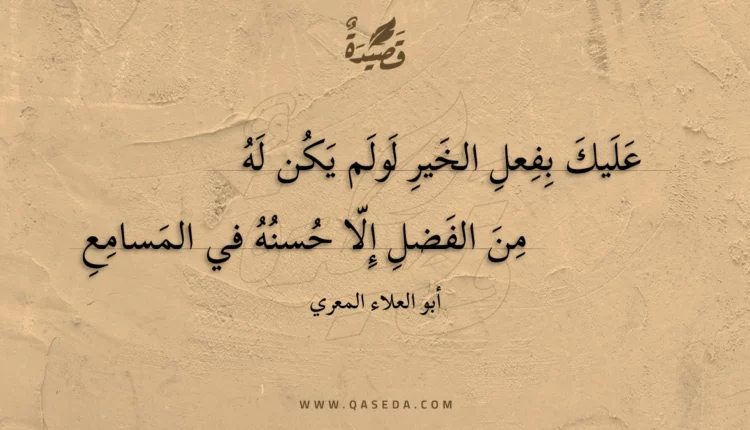 قَصِيْدَةٌ
عَلَيكَ بِفِعلِ الخَيرِ لَولَم يَكُن لَهُ
مِنَ الفَضلِ إِلّا حُسنُهُ في المَسامِعِ
أبو العلاء المعري
WWW.QASEDA.COM